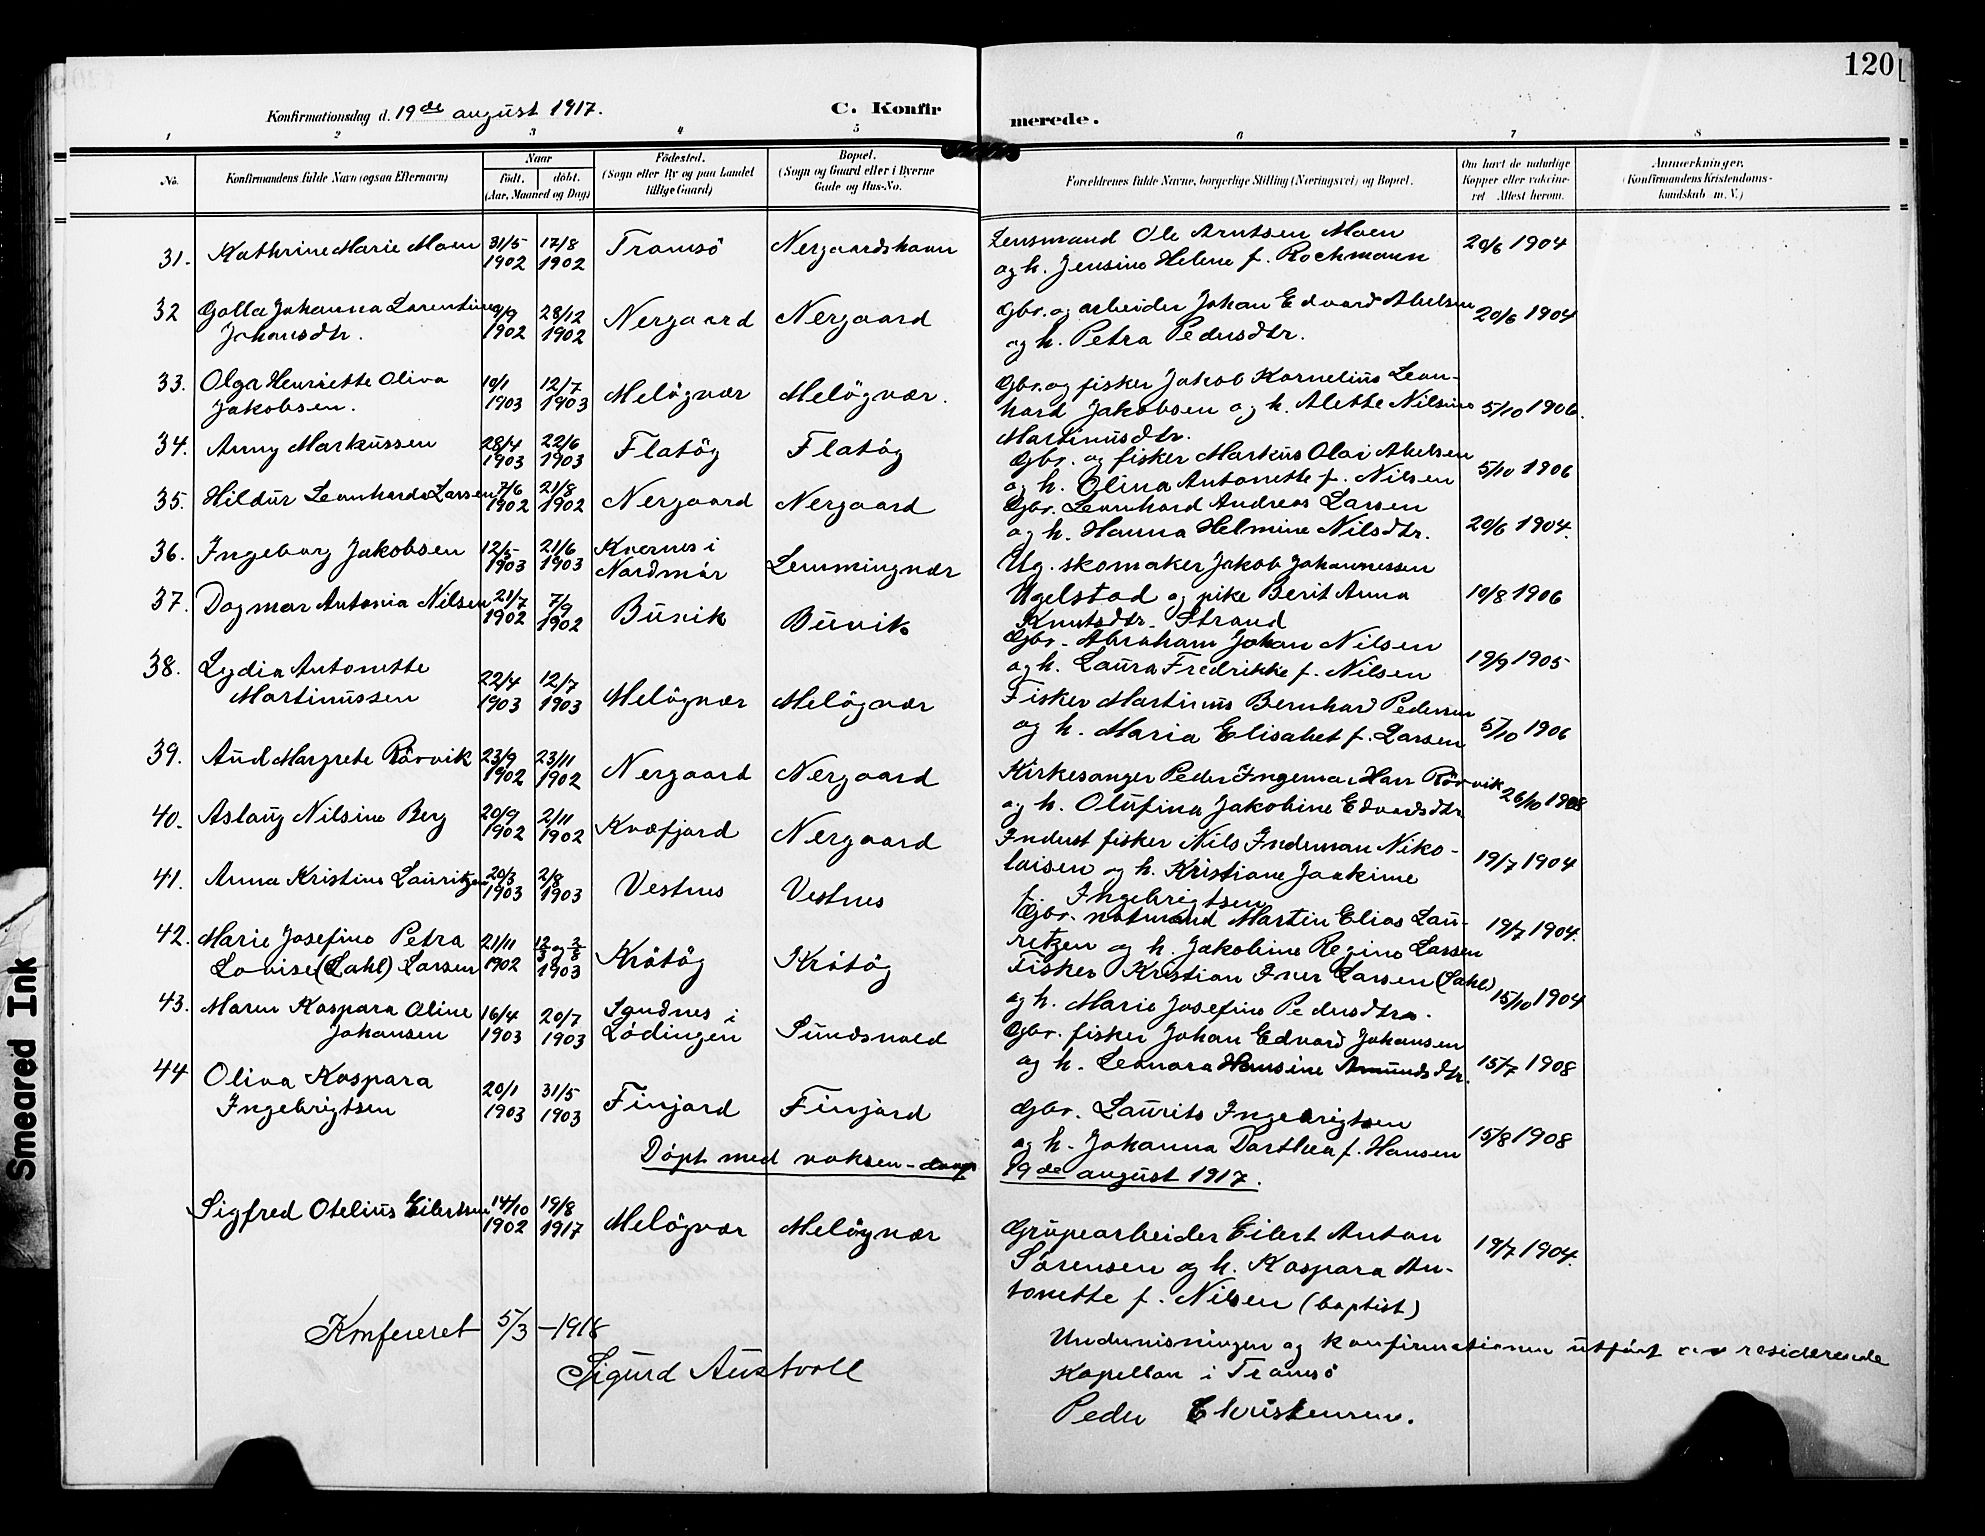 120
Konfirmationsdag d. 19de august 1917.
C. Konfirmerede.
1 2 3 4 5 6 7 8
No.
Konfirmandens fulde Navn (ogsaa Efternavn)
Naar
født. døbt.
(Aar, Maaned og Dag)
Födested.
(Sogn eller By og paa Landet
tillige Gaard)
Bopæl.
(Sogn og Gaard eller i Byerne
Gade og Hus-No.
Forældrenes fulde Navne, borgerlige Stilling (Næringsvei) og Bopæl.
Om havt de naturlige
Kopper eller vakcine-
ret Attest herom.
Anmerkninger.
(Konfirmandens Kristendoms-
kundskab m. V.)
31. Kathrine Marie Moen 31/5 1902 17/8 1902 Tromsö Nergaardshavn
Lensmand Ole Arntsen Moen
og h. Jensine Helene f. Rochmann 20/6 1904
32 Golla Johanna Larentine
Johansdtr. 9/9 1902 28/12 1902 Nergaard Nergaard
Gbr. og arbeider Johan Edvard Abelsen
og h. Petra Pedersdtr. 20/6 1904
33. Olga Henriette Oliva
Jakobsen. 10/1 1903 12/7 1903 Melögvær Melögvær.
Gbr. og fisker Jakob Kornelius Leon-
hard Jakobsen og h. Alette Nilsine
Martinusdtr. 5/10 1906.
34. Anny Markussen 28/4 1903 22/6 1903 Flatög Flatög
Gbr. og fisker Markus Olai Abelsen
og h. Olina Antonette f. Nilsen 5/10 1906
35. Hildur Leonharda Larsen 7/6 1902 21/8 1902 Nergaard Nergaard
Gbr. Leonhard Andreas Larsen
og h. Hanna Helmine Nilsdtr. 20/6 1904.
36. Ingeborg Jakobsen 12/5 1903 21/6 1903 Kvernes i
Nordmör Lemmingvær
Ug. skomaker Jakob Johannessen
Ugelstad og pike Berit Anna
Knutsdtr. Strand 10/8 1906
37. Dagmar Antonia Nilsen 21/7 1902 7/9 1902 Buvik Buvik
Gbr. Abraham Johan Nilsen
og h. Laura Fredrikke f. Nilsen 19/9 1905
38. Lydia Antonette
Martinussen 22/4 1903 12/7 1903 Melögvær Melögvær
Fisker Martinus Bernhard Pedersen
og h. Maria Elisabet f. Larsen 5/10 1906
39. Aud Margrete Rövik 23/9 1902 23/11 1902 Nergaard Nergaard
Kirkesanger Peder Ingemar Harr Rövik
og h. Olufina Jakobine Edvardsdtr 26/10 1908
40. Aslaug Nilsine Berg 20/9 1902 2/11 1902 Kvæfjord Nergaard
Inderst fisker Nils Indeman Niko-
laisen og h. Kristiane Joakime
f. Ingebrigtsen 19/7 1904
41. Anna Kristine Lauritzen 20/3 1903 2/8 1903 Vestnes Vestnes
Gbr. notmand Martin Elias Lau-
ritzen og h. Jakobine Regine Larsen 19/7 1904.
42. Marie Josefine Petra
Lovise (Sahl) Larsen 21/11 1902 12/3 og 2/8 1903 Kråtög Kråtög
Fisker Kristian Iver Larsen (Sahl)
og h. Marie Josefine Pedersdtr. 15/10 1904
43. Maren Kaspara Oline
Johansen 16/4 1903 20/7 1903 Sandnes i
Lödingen Sundsvold
Gbr. fisker Johan Edvard Johansen
og h. Leonora Hansine Amundsdtr. 15/7 1908
44 Oliva Kaspara
Ingebrigtsen 20/1 1903 31/5 1903 Finjord Finjord
Gbr. Laurits Ingebrigtsen
og h. Johanna Dorthea f. Hansen 15/8 1908
Döpt med voksen-daap 19de august 1917.
Sigfred Otelius Eilertsen 14/10 1902 19/8 1917 Melögvær Melögvær
Grubearbeider Eilert Anton
Sörensen og h. Kaspara An-
tonette f. Nilsen (baptist) 19/7 1904.
Konfereret 5/3 – 1918
Sigurd Austvoll
Undervisningen og konfirmationen utfört av residerende
Kapellan i Tromsö
Peder Christensen.
Smeared Ink